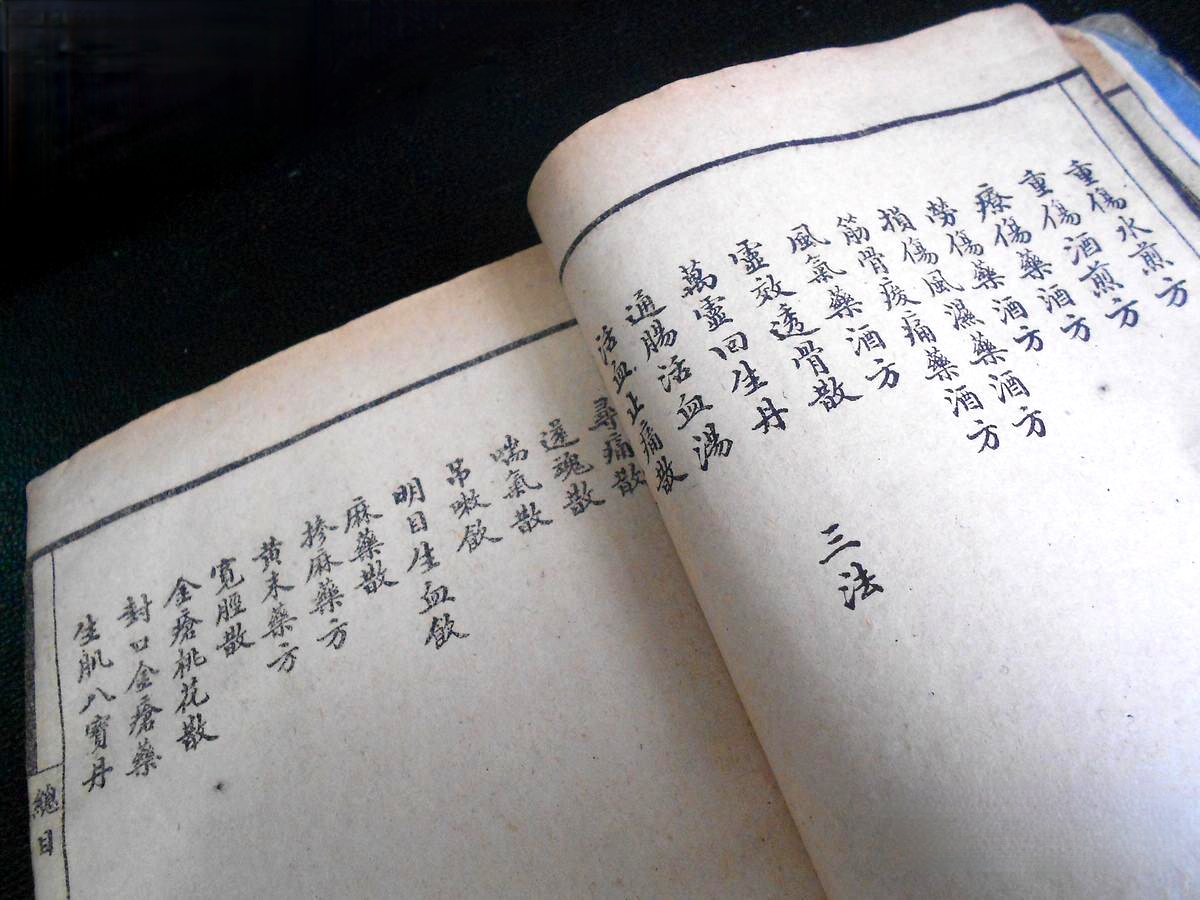 重傷水煎方
重傷酒煎方
療傷藥酒方
勞傷藥酒方
損傷風濕藥酒方
筋骨痠痛藥酒方
風氣藥酒方
靈效透骨散
三法
萬靈回生丹
通腸活血湯
活血止痛散
尋痛散
返魂散
喘氣散
吊嗽飲
明目生血飲
麻藥散
摻麻藥方
黃末藥方
寬脛散
金瘡桃花散
封口金瘡藥
生肌八寶丹
總目